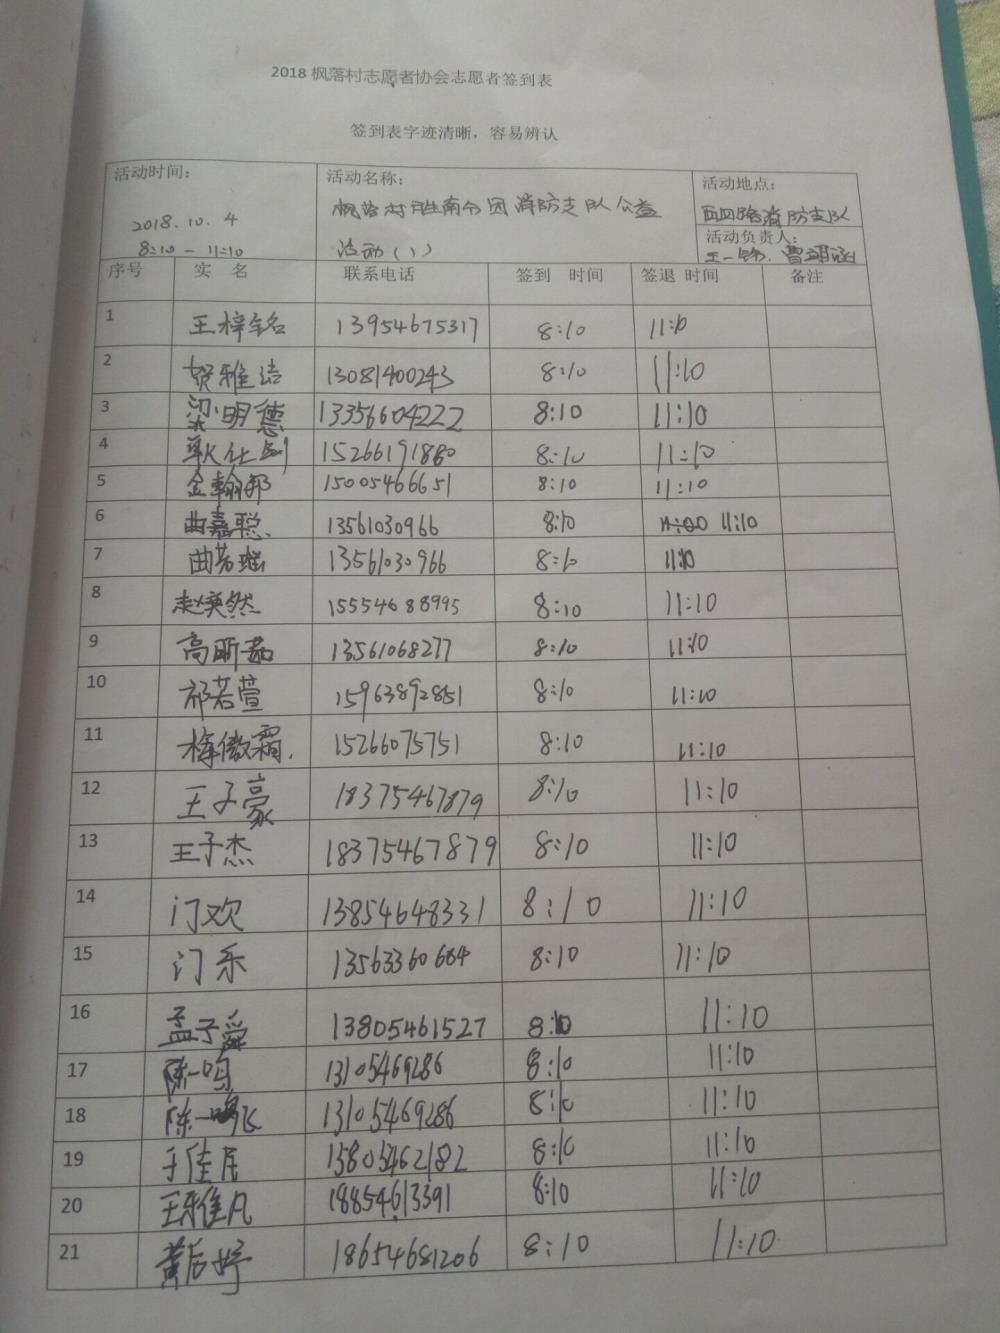 2018 枫落村志愿者协会志愿者签到表
签到表字迹清晰，容易辨认
活动时间：
2018.10.4
8:10-11:10
活动名称：
枫落村胜南分团消防支队公益
活动(1)
活动地点：
西四路消防支队
活动负责人：
王一铭.曹翊涵
序号 实 名 联系电话 签到 时间 签退 时间 备注
1 王梓铭 13954675317 8:10 11:10
2 贺雅洁 13081400243 8:10 11:10
3 梁明德 13356604222 8:10 11:10
4 15266191880 8:10 11:10
5 金翰邦 15005466651 8:10 11:10
6 曲嘉聪 13561030966 8:10 11:00 11:10
7 曲若瑶 13561030966 8:10 11:10
8 赵奕然 15554688995 8:10 11:10
9 高昕茹 13561068277 8:10 11:10
10 祁若萱 15963892851 8:10 11:10
11 梅傲霜. 15266075751 8:10 11:10
12 王子豪 18375467879 8:10 11:10
13 王子杰 18375467879 8:10 11:10
14 门欢 13854648331 8:10 11:10
15 门乐 13563360684 8:10 11:10
16 孟子舜 13805461527 8:10 11:10
17 陈一鸣 13105469286 8:10 11:10
18 陈一飞 13105469286 8:10 11:10
19 于佳民 15805462182 8:10 11:10
20 王雅凡 18854613391 8:10 11:10
21 黄后婷 18654681206 8:10 11:10